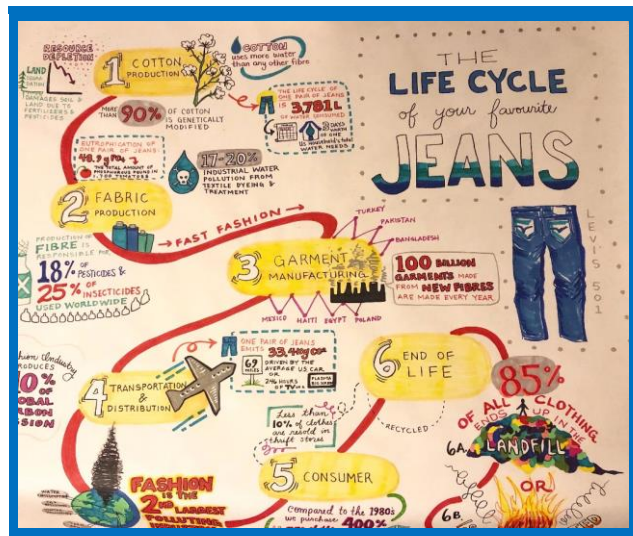 THE
LIFE CYCLE
of your favourite
JEANS
LEVI'S 501
RESOURCE
DEPLETION
LAND
DAMAGES SOIL &
LAND DUE TO
FERTILIZERS &
PESTICIDES
1 COTTON
PRODUCTION
MORE
THAN
90% OF COTTON
IS GENETICALLY
MODIFIED
COTTON
uses more water
than any other fibre
THE LIFE CYCLE OF
ONE PAIR OF JEANS
IS 3,781 L
OF WATER CONSUMED
3 DAYS
WORTH
OF ONE
US HOUSEHOLD'S TOTAL
WATER NEEDS
EUTROPHICATION OF
ONE PAIR OF JEANS
48.9 g PO4
THE TOTAL AMOUNT OF
PHOSPHOROUS FOUND IN
TOMATOES
17-20%
INDUSTRIAL WATER
POLLUTION FROM
TEXTILE DYEING &
TREATMENT
2 FABRIC
PRODUCTION
FAST FASHION
PRODUCTION OF
FIBRE IS
RESPONSIBLE FOR
18% OF
PESTICIDES &
25% OF
INSECTICIDES
USED WORLDWIDE
3 GARMENT
MANUFACTURING
TURKEY
PAKISTAN
BANGLADESH
MEXICO HAITI EGYPT POLAND
100 BILLION
GARMENTS MADE
FROM NEW FIBRES
ARE MADE EVERY YEAR
4 TRANSPORTATION
& DISTRIBUTION
ONE PAIR OF JEANS
EMITS 33.4 kg CO2
69
MILES
DRIVEN BY THE
AVERAGE US CAR
OR
246 HOURS
OF TV ON A
PLASMA
BIG SCREEN
FASHION
IS THE
2nd LARGEST
POLLUTING
5 CONSUMER
Less than
10% of clothes
are resold in
thrift stores
Compared to the 1980s
we purchase 400%
6 END OF
LIFE
RECYCLED
85%
OF ALL CLOTHING
ENDS UP IN THE
6A LANDFILL
OR
6B